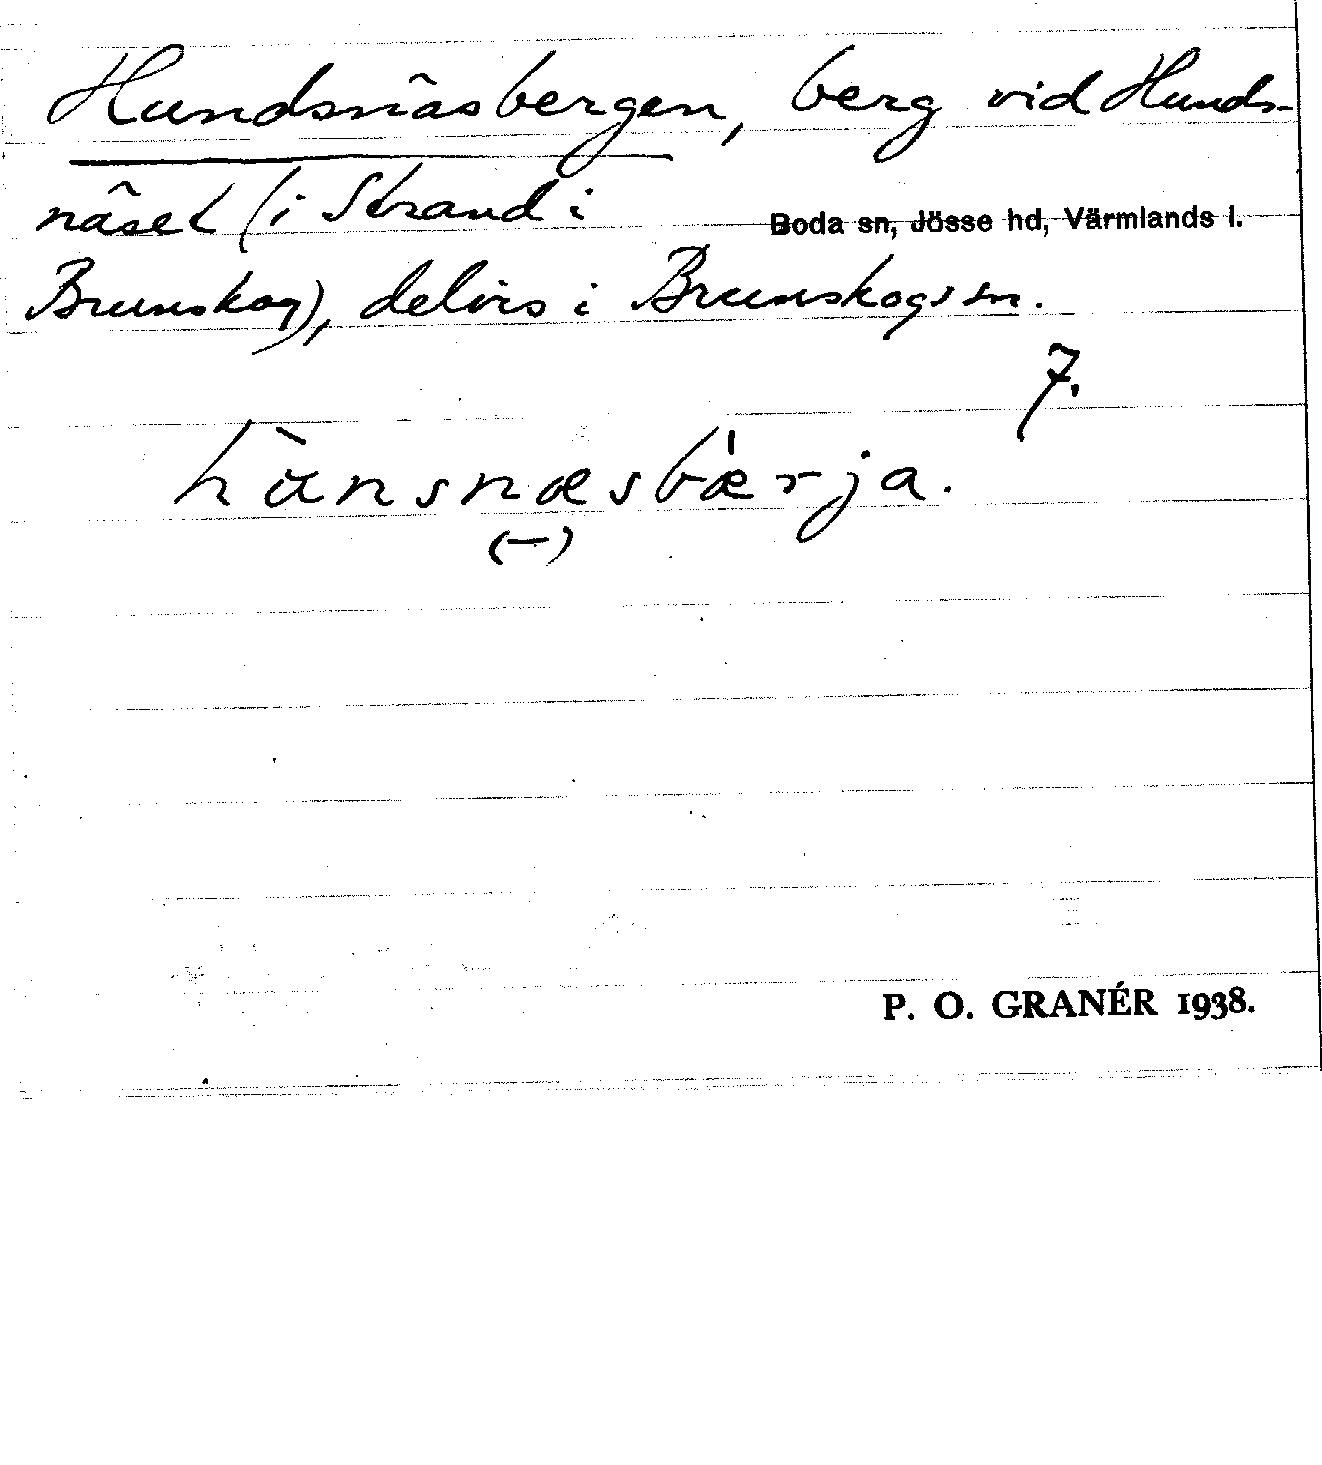 Hundsnäsbergen, berg vid Hunds-
näset (i Strand i
Boda sn, Jösse hd, Värmlands l.
Brunskog), delvis i Brunskogs sn.
7.
hùnsnæsbǽrja.
(–)
P. O. GRANÉR 1938.